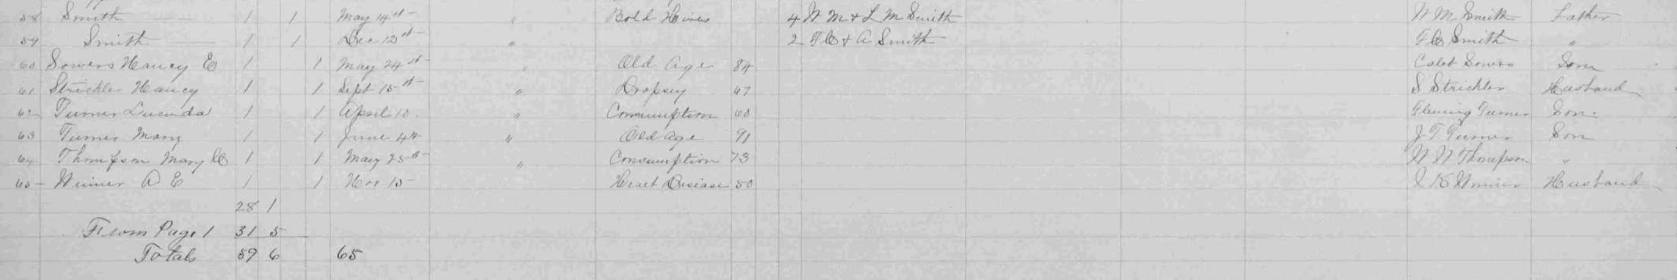 58 Smith 1 1 May 14st " Bold Hives 4 W M & L M Smith W M Smith Father
59 Smith 1 1 Dec 12st " 2 T C & A Smith T C Smith "
60 Sowers Nancy E 1 1 May 24st " Old Age 84 Caleb Sowers Son
61 Strickler Nancy 1 1 Sept 15st " Dropsy 67 S Strickler Husband
62 Turner Lucinda 1 1 April 10 " Consumption 60 Turner Son
63 Turner Mary 1 1 June 4th " Old Age 91 J T Turner Son
64 Thompson Mary 1 1 May 25th " Consumption 73 W W Thompson "
65 A E 1 1 Nov 15 Heart Disease 50 Husband
28 1
From Page 1 31 5
Totals 59 6 65